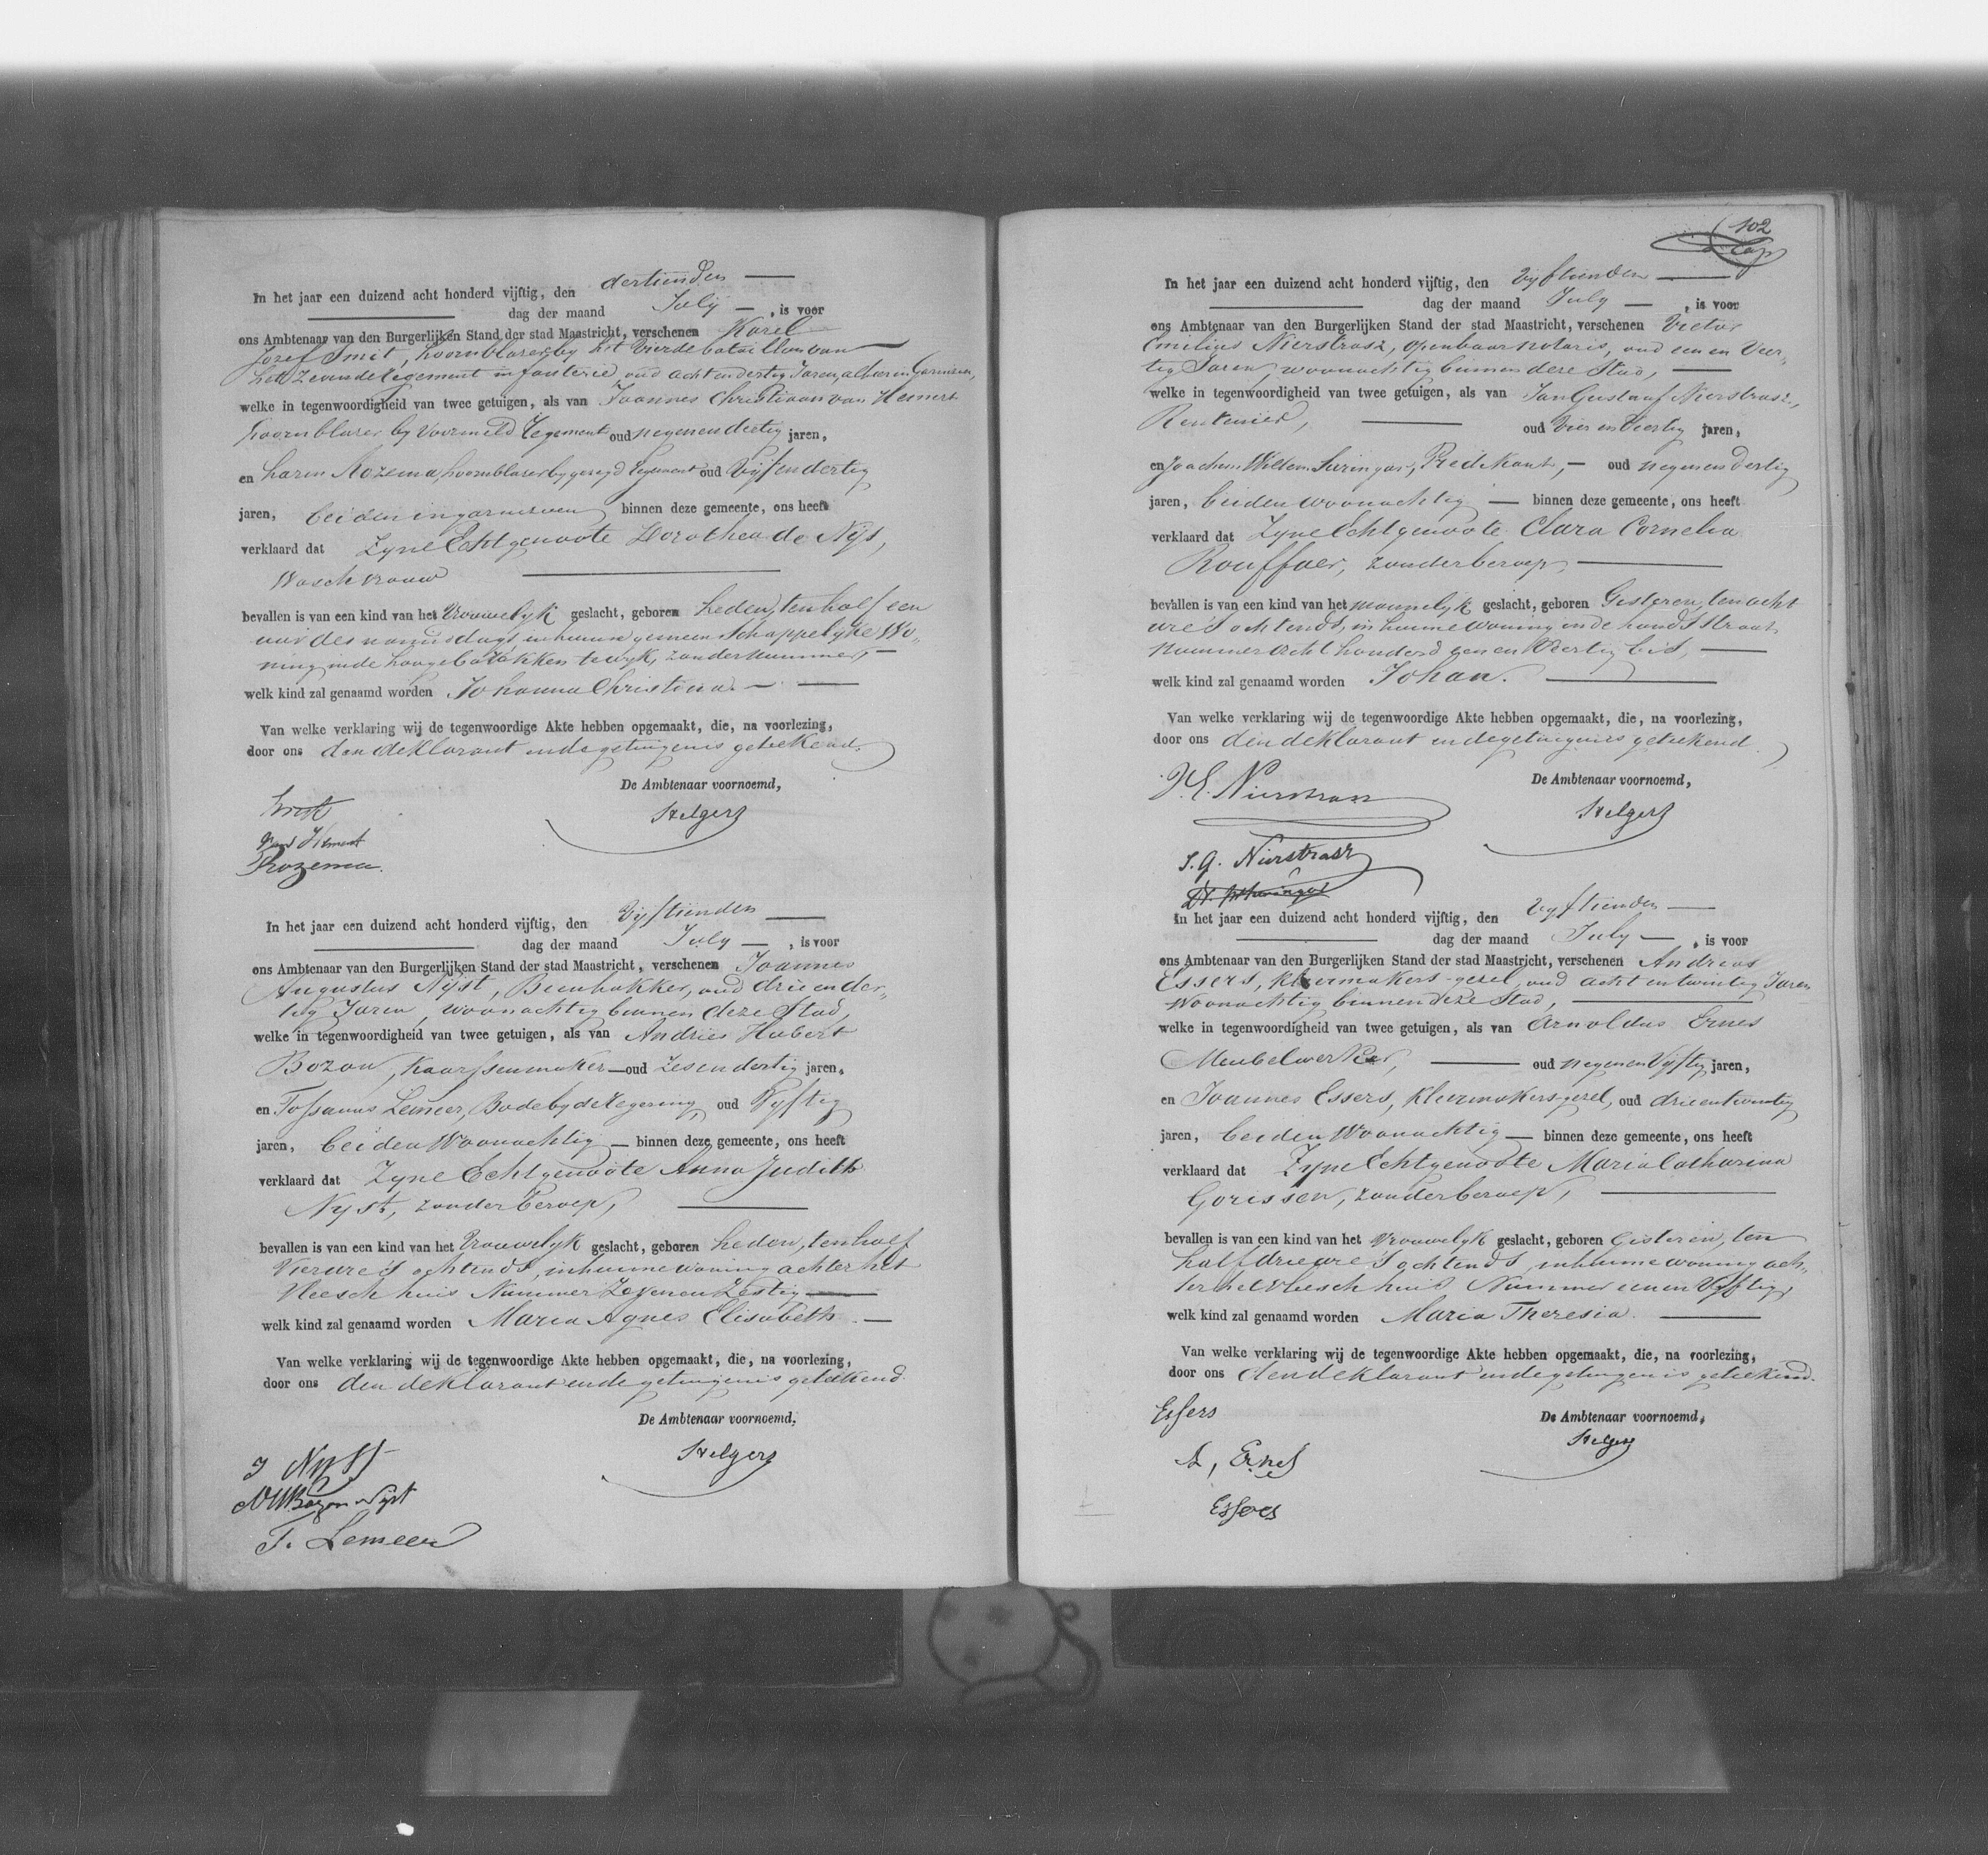 In het jaar een duizend acht honderd vijftig, den dertienden
dag der maand July, is voor
ons Ambtenaar van den Burgerlijken Stand der stad Maastricht, verschenen Karel
Jozef Smit, hoornblazer by het vierde bataillon van
het zevende regement infanterie, oud acht en dertig Jaren, alhier in Garnizoen,
welke in tegenwoordigheid van twee getuigen, als van Joannes Christiaan van Hemert
hoornblazer by voormeld regement oud negen en dertig jaren,
en Harm Rozema, hoornblazer by gezegd regement oud Vijf en dertig
jaren, beiden in garnizoen binnen deze gemeente, ons heeft
verklaard dat zyne Echtgenoote Dorothea de Nijs,
Waschvrouw
bevallen is van een kind van het Vrouwelyk geslacht, geboren heden, ten half een
uur des namiddags in hunne gemeenschappelyke Wo-
ning in de hooge barakken te wyk, zonder nummer,
welk kind zal genaamd worden Johanna Christina.
Van welke verklaring wij de tegenwoordige Akte hebben opgemaakt, die, na voorlezing,
door ons den deklarant en de getuigen is geteekend.
De Ambtenaar voornoemd,
Smit
Stelgers
van Hemert
Rozema.
In het jaar een duizend acht honderd vijftig, den Vijftienden
dag der maand July, is voor
ons Ambtenaar van den Burgerlijken Stand der stad Maastricht, verschenen Joannes
Augustus Nijst, Beenhakker, oud drie en der-
tig Jaren, woonachtig binnen deze Stad,
welke in tegenwoordigheid van twee getuigen, als van Andries Hubert
Bozon, Kaarssenmaker oud zes en dertig jaren,
en Tossanus Lemeer, Bode by de regering, oud Vyftig
jaren, beiden Woonachtig binnen deze gemeente, ons heeft
verklaard dat Zyne Echtgenoote Anna Judith
Nyst, zonder beroep,
bevallen is van een kind van het Vrouwelyk geslacht, geboren heden, ten half
Vier ure 's ochtends, in hunne woning achter het
Vleesch huis Nummer Zeven en Zestig
welk kind zal genaamd worden Maria Agnes Elisabeth.
Van welke verklaring wij de tegenwoordige Akte hebben opgemaakt, die, na voorlezing,
door ons den deklarant en de getuigen is geteekend.
De Ambtenaar voornoemd,
J Nyst
Stelgers
AH Bozon Nyst
T. Lemeer
102
In het jaar een duizend acht honderd vijftig, den Vyftienden
dag der maand July, is voor
ons Ambtenaar van den Burgerlijken Stand der stad Maastricht, verschenen Victor
Emilius Nierstrasz, openbaar notaris, oud een en Veer-
tig Jaren, woonachtig binnen deze Stad,
welke in tegenwoordigheid van twee getuigen, als van Jan Gustaaf Nierstrasz,
Rentenier, oud Vier en Veertig jaren,
en Joachem Willem Suringar, Predikant, oud negen en dertig
jaren, beiden woonachtig binnen deze gemeente, ons heeft
verklaard dat Zyne Echtgenoote Clara Cornelia
Rouffaer, zonder beroep,
bevallen is van een kind van het mannelyk geslacht, geboren Gisteren, ten acht
ure 's ochtends, in hunne woning in de hondstraat
nummer Acht honderd een en Veertig bis,
welk kind zal genaamd worden Johan.
Van welke verklaring wij de tegenwoordige Akte hebben opgemaakt, die, na voorlezing,
door ons den deklarant en de getuigen is geteekend.
De Ambtenaar voornoemd,
V.E. Nierstrasz
Stelgers
J. G. Nierstrasz
In het jaar een duizend acht honderd vijftig, den Vyftienden
dag der maand July, is voor
ons Ambtenaar van den Burgerlijken Stand der stad Maastricht, verschenen Andries
Essers, kleermakers-gezel, oud acht en twintig Jaren
Woonachtig binnen deze Stad,
welke in tegenwoordigheid van twee getuigen, als van Arnoldus Ernes
Meubelwerker, oud negen en Vyftig jaren,
en Joannes Essers, Kleermakers-gezel, oud drie en twintig
jaren, beiden Woonachtig binnen deze gemeente, ons heeft
verklaard dat Zyne Echtgenoote Maria Catharina
Gorissen, zonder beroep,
bevallen is van een kind van het Vrouwelyk geslacht, geboren Gisteren, ten
half drie ure 's ochtends, in hunne woning ach-
ter het vleesch huis Nummer een en Vyftig,
welk kind zal genaamd worden Maria Theresia.
Van welke verklaring wij de tegenwoordige Akte hebben opgemaakt, die, na voorlezing,
door ons den deklarant en de getuigen is geteekend.
De Ambtenaar voornoemd,
Essers
Stelgers
A, Ernes
Essers